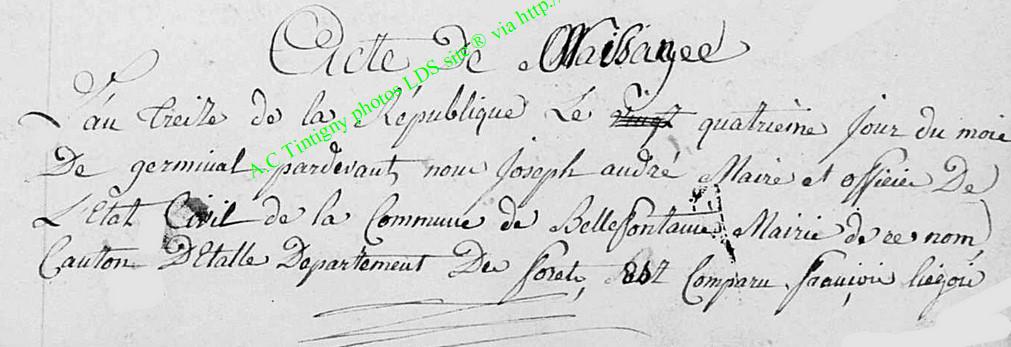 Acte de Naissance
L'an treize de la République Le vingt quatrième jour du mois
De germinal pardevant nous joseph andré Maire et officier De
L'Etat Civil de la Commune de Bellefontaine Mairie de ce nom
Canton D'Etalle Departement Des forets, Est Comparu françois liégois
A.C Tintigny photos LDS site® via http:/